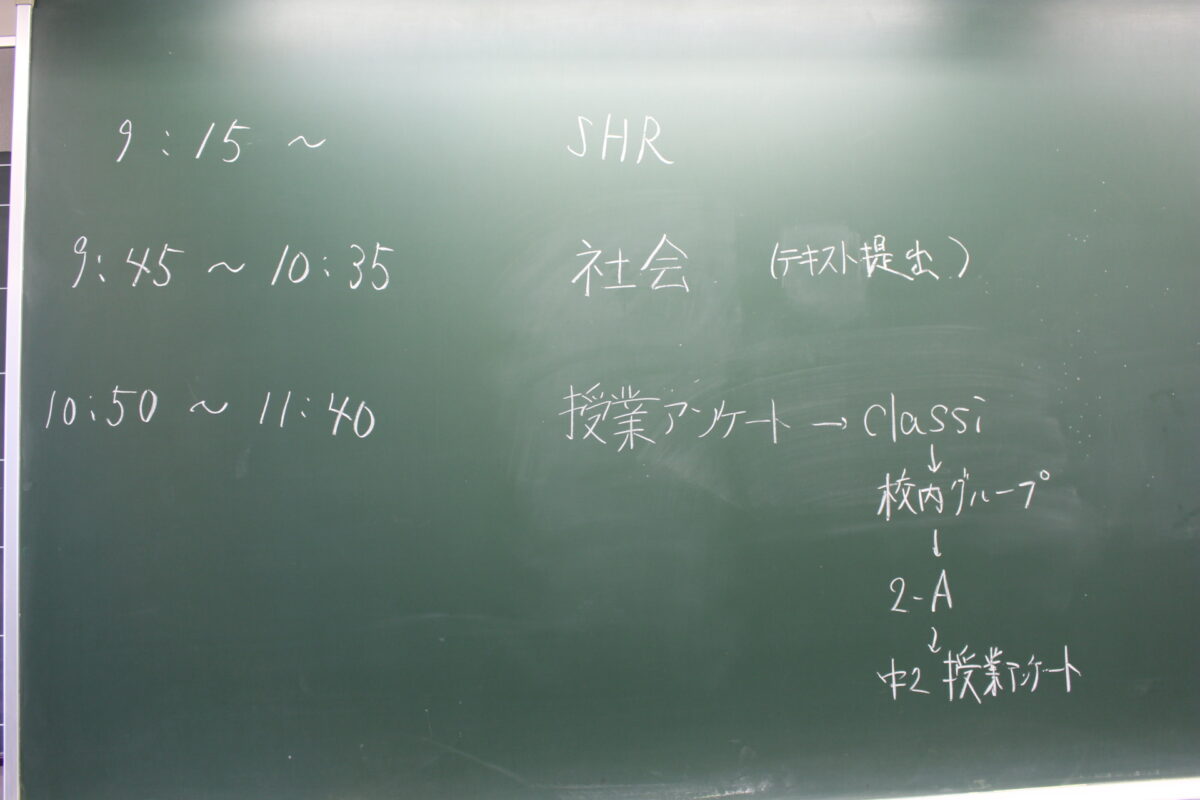 9:15～ SHR
9:45～10:35 社会 (テキスト提出)
10:50～11:40 授業アンケート→classi
↓
校内グループ
↓
2-A
↓
中2 授業アンケート